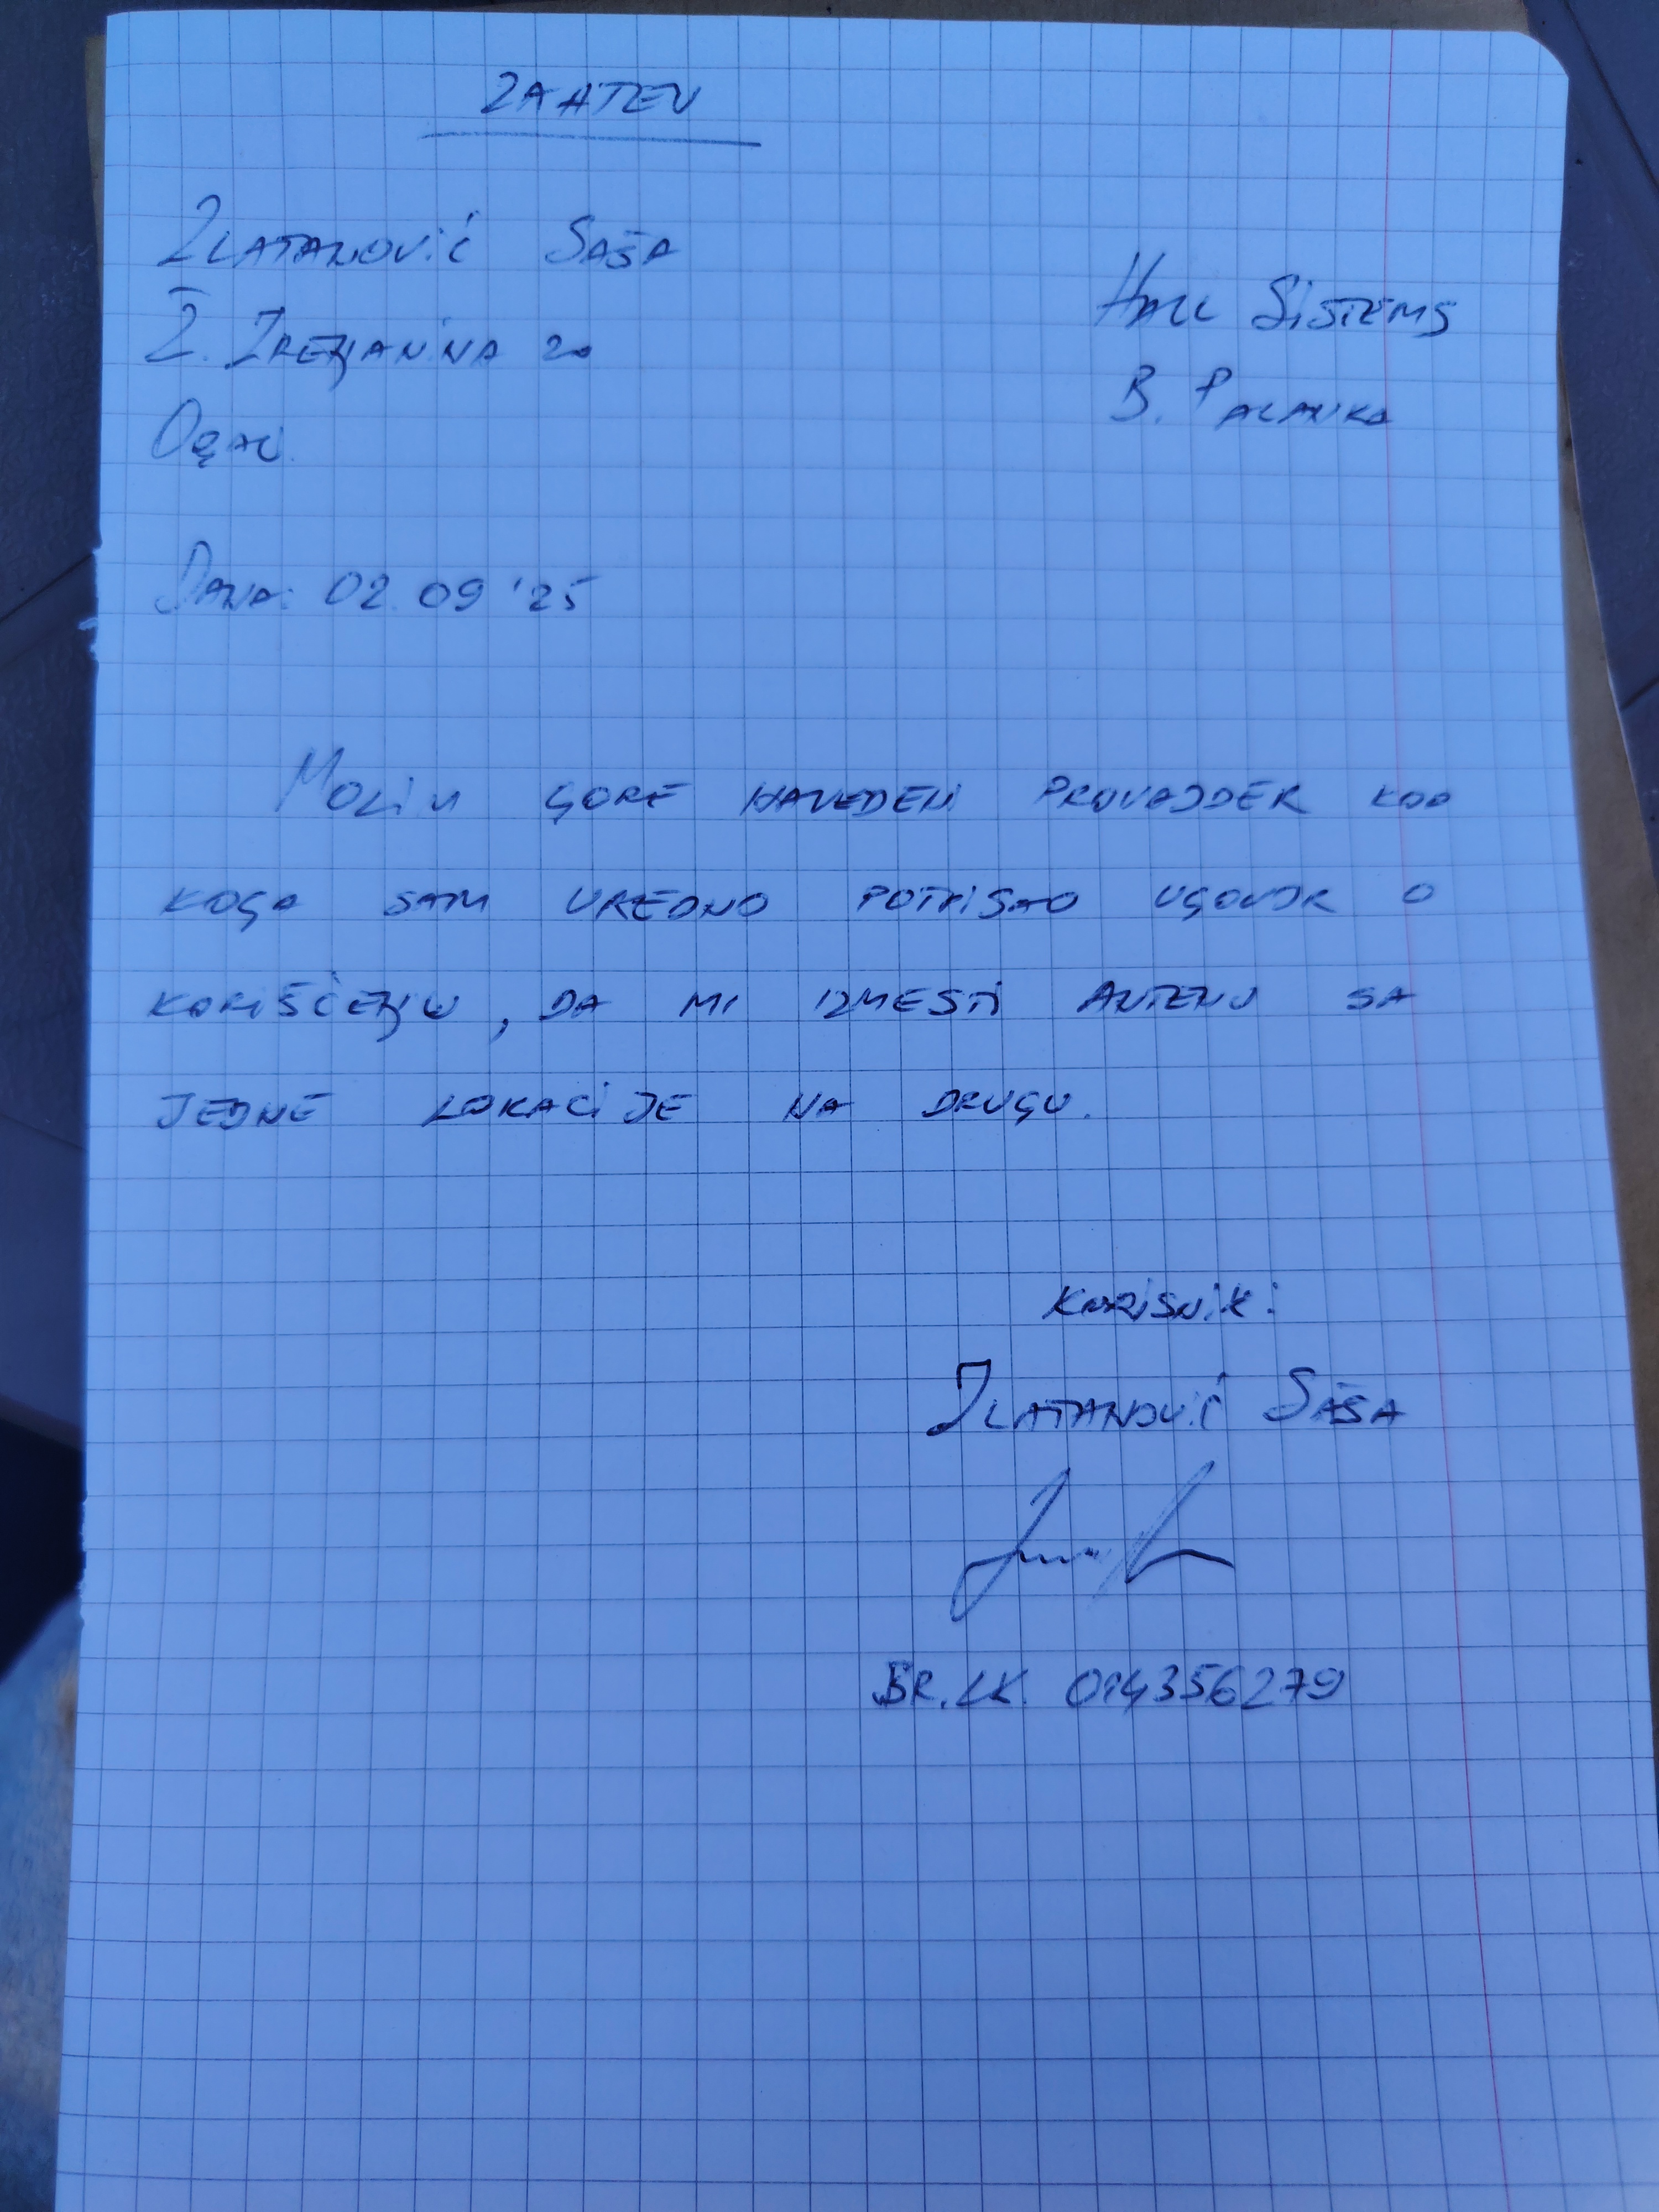 ZAHTEV
Zlatanović Saša
Ž. Zrenjanina 20
Ogar
Hall Sistems
B. Palanka
Dana: 02.09 '25
Molim gore navedeni provajder kod
koga sam uredno potpisao ugovor o
korišćenju, da mi izmesti antenu sa
jedne lokacije na drugu.
Korisnik:
Zlatanović Saša
BR. LK. 014356279